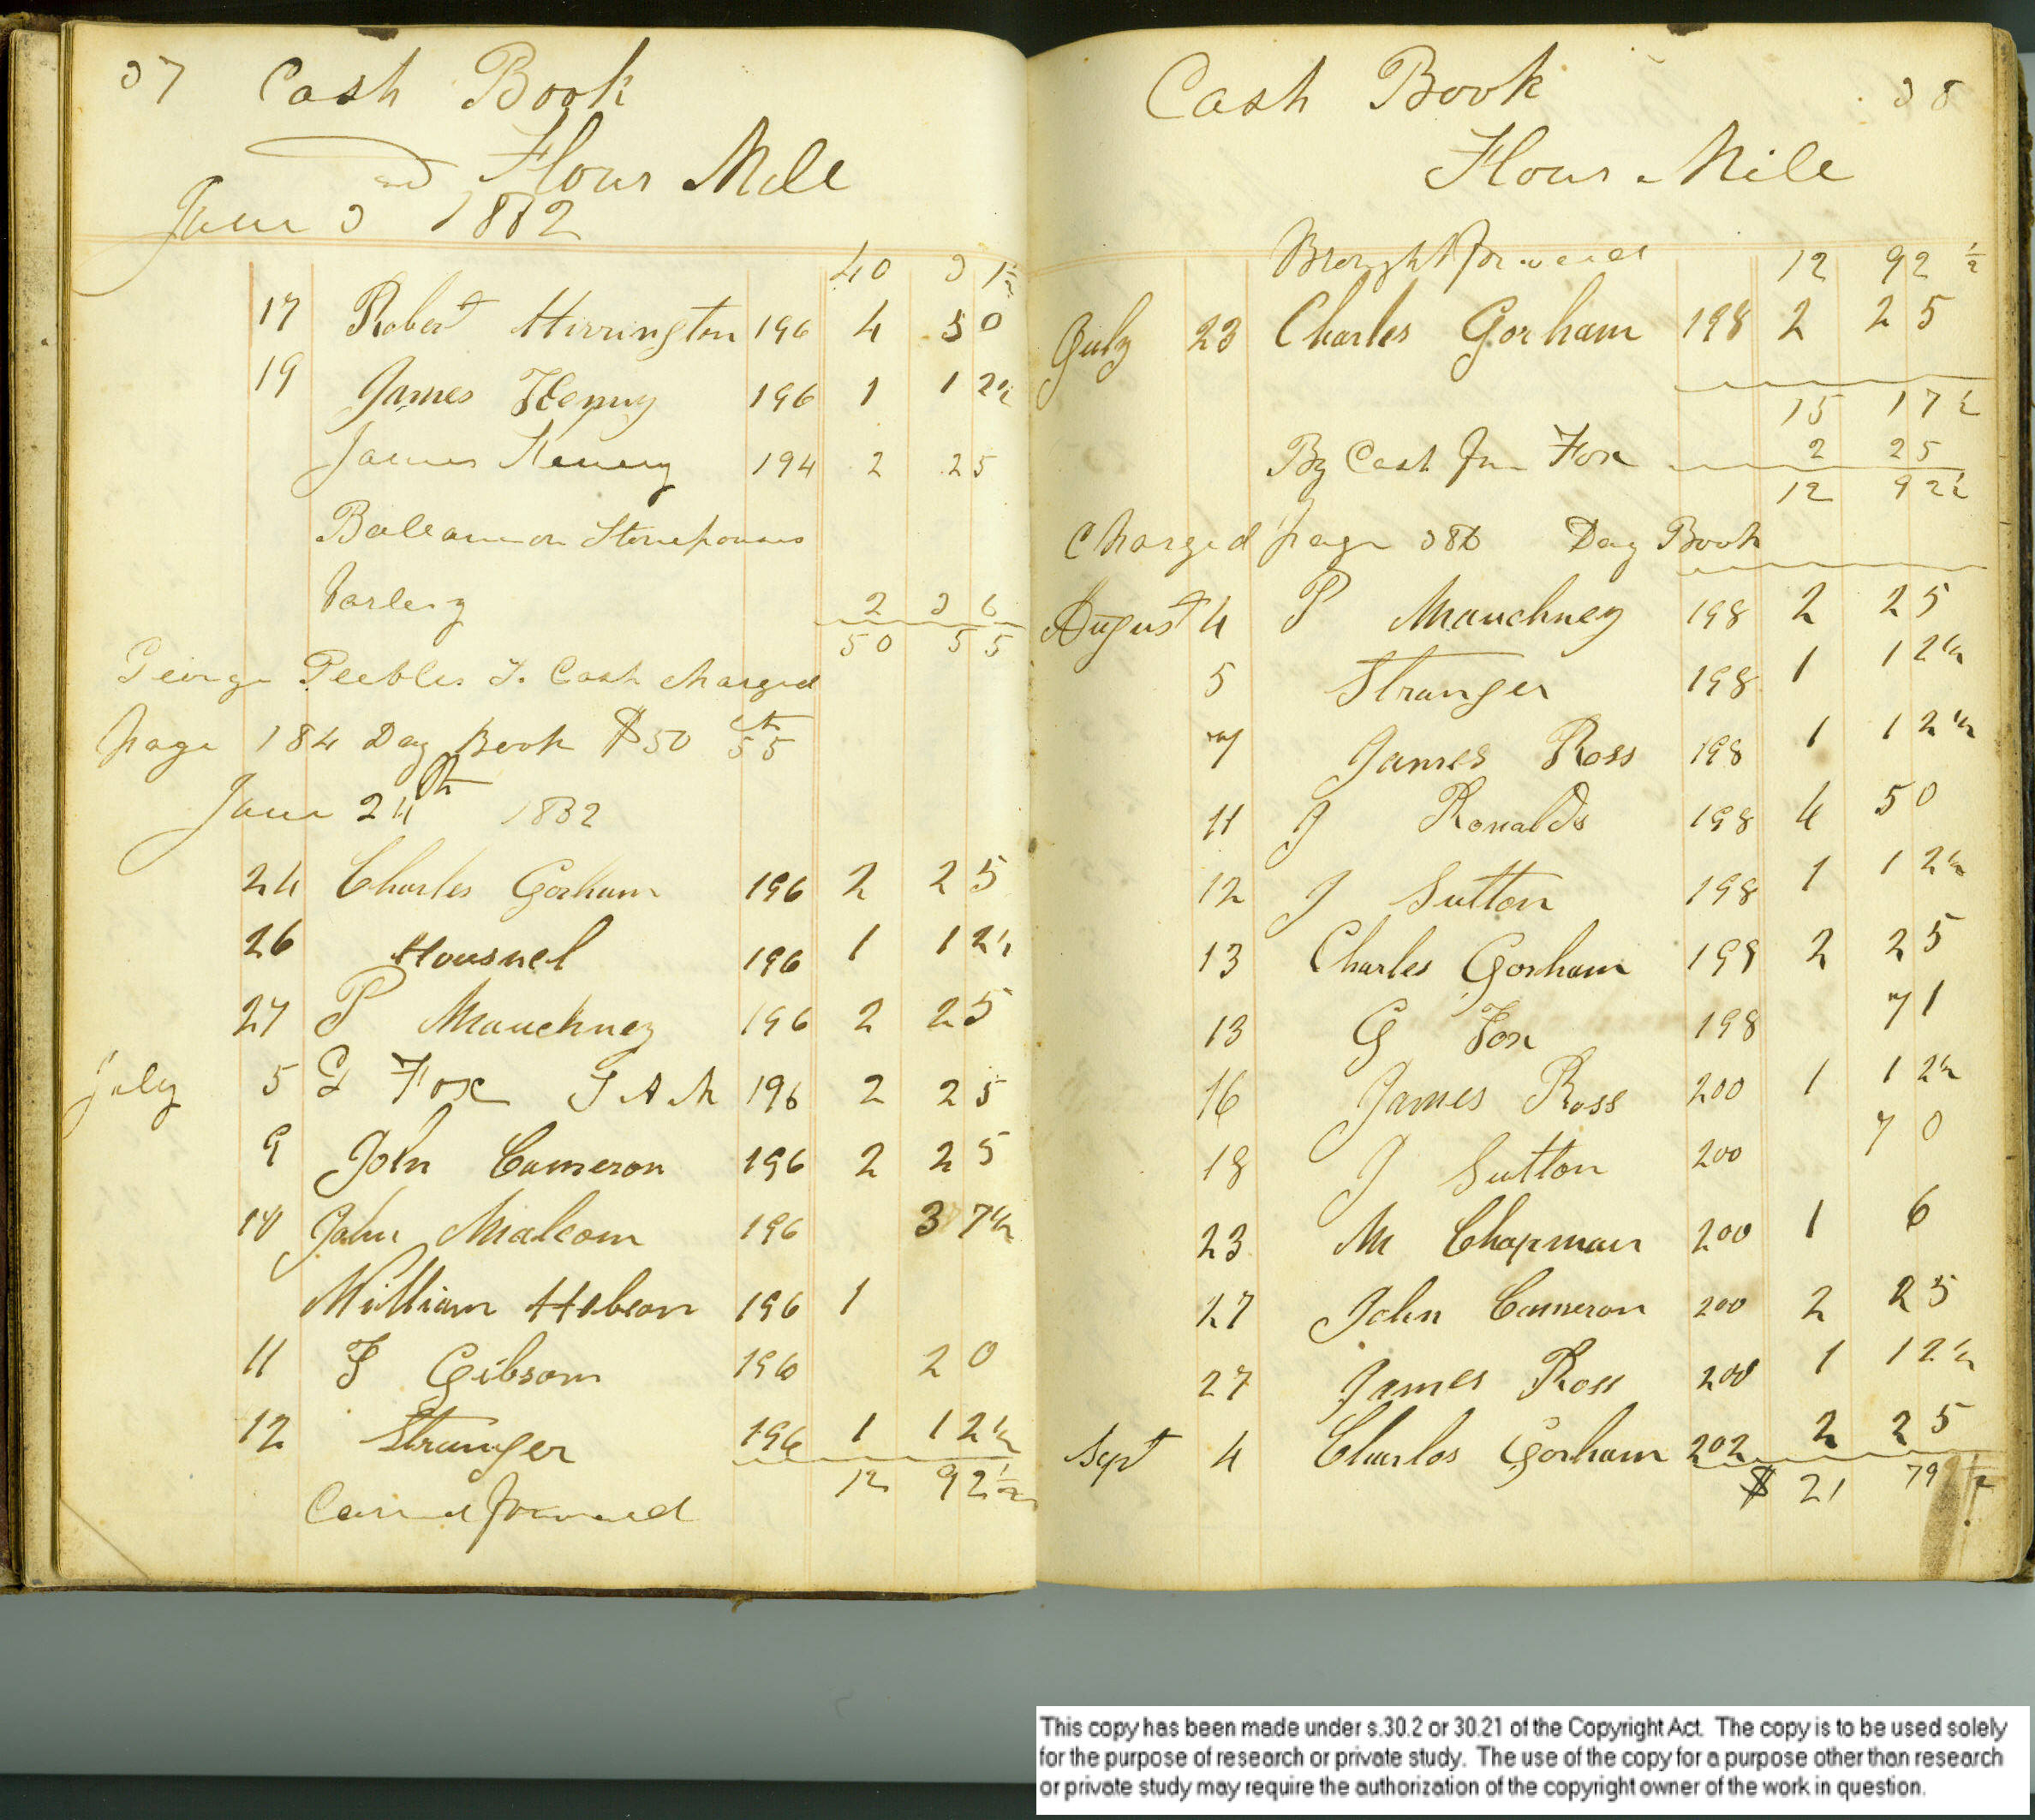 37 Cash Book
Flour Mill
June 3 1882
40 31½
17 Robert Hirrington 196 4 50
19 James Henry 196 1 12½
James Henery 194 2 25
Ballance on
2 36
50 55
George Peebles To Cash charged
page 184 Day Book $50 55 cts
June 24th 1882
24 Charles Gorham 196 2 25
26 Housnel 196 1 12½
27 P Mauchney 196 2 25
July 5 G Fox 196 2 25
9 John Cameron 196 2 25
10 John Malcom 196 37½
William Hobson 196 1
11 J Gibsom 196 20
12 Stranger 196 1 12½
12 92½
Carried forward
Cash Book 38
Flour Mill
Brought forward 12 92½
July 23 Charles Gorham 198 2 25
15 17½
By Cash Fox 2 25
12 92½
Charged page Day Book
August 4 P Mauchney 198 2 25
5 Stranger 198 1 12½
7 James Ross 198 1 12½
11 J Ronalds 198 4 50
12 J Sutton 198 1 12½
13 Charles Gorham 198 2 25
13 G Fox 198 71
16 James Ross 200 1 12½
18 J Sutton 200 70
23 M Chapman 200 1 6
27 John Cameron 200 2 25
27 James Ross 200 1 12½
Sept 4 Charles Gorham 202 2 25
$ 21 79½
This copy has been made under s.30.2 or 30.21 of the Copyright Act. The copy is to be used solely
for the purpose of research or private study. The use of the copy for a purpose other than research
or private study may require the authorization of the copyright owner of the work in question.